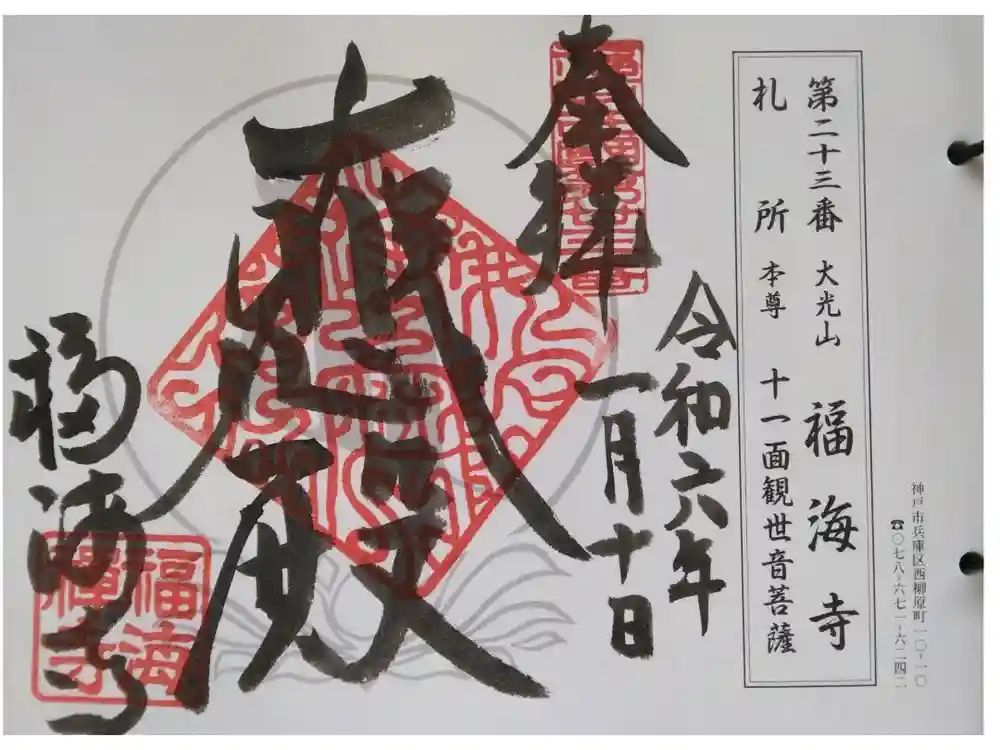 第二十三番 大光山 福海寺
札所 本尊 十一面観世音菩薩
神戸市兵庫区西柳原町一〇-一〇
☎〇七八-六七一-六二四二
奉拝
令和六年
一月十日
殿
福海寺
福海
禅寺